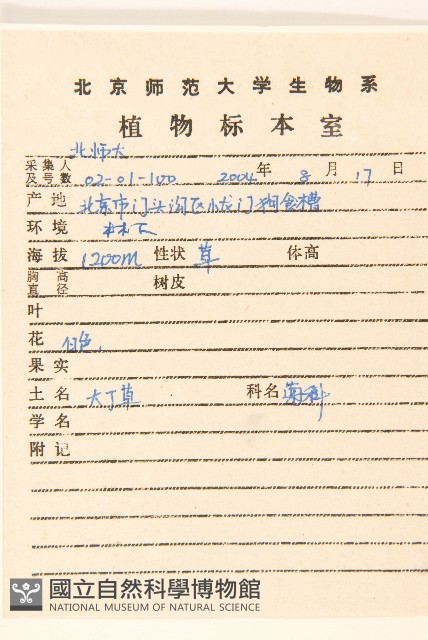 北京师范大学生物系
植物标本室
采集人及号数 北师大 02-01-100 2004年8月17日
产地 北京市门头沟区小龙门狗食槽
环境 林下
海拔 1200m 性状 草 体高
胸高直径 树皮
叶
花 白色,
果实
土名 大丁草 科名 菊科
学名
附记
國立自然科學博物館
NATIONAL MUSEUM OF NATURAL SCIENCE